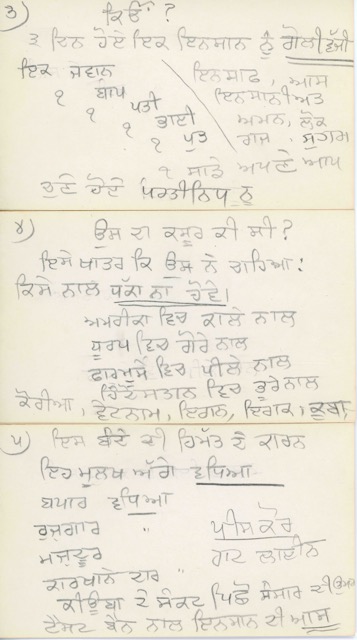 ੩) ਕਿਓਂ ?
੩ ਦਿਨ ਹੋਏ ਇਕ ਇਨਸਾਨ ਨੂੰ ਗੋਲੀ ਵੱਜੀ
ਇਕ ਜਵਾਨ ਇਨਸਾਫ, ਆਸ
੧ ਬਾਪ ਇਨਸਾਨੀਅਤ
੧ ਪਤੀ ਅਮਨ, ਲੋਕ
੧ ਭਾਈ ਰਾਜ,
੧ ਪੁਤ
੧ ਸਾਡੇ ਅਪਣੇ ਆਪ
ਚੁਣੇ ਹੋਏ ਪਰਤੀਨਿਧ ਨੂੰ
੪) ਉਸ ਦਾ ਕਸੂਰ ਕੀ ਸੀ ?
ਇਸੇ ਖਾਤਰ ਕਿ ਉਸ ਨੇ ਚਾਹਿਆ :
ਕਿਸੇ ਨਾਲ ਧੱਕਾ ਨਾ ਹੋਵੇ।
ਅਮਰੀਕਾ ਵਿਚ ਕਾਲੇ ਨਾਲ
ਯੂਰਪ ਵਿਚ ਗੋਰੇ ਨਾਲ
ਵਿਚ ਪੀਲੇ ਨਾਲ
ਹਿੰਦੋਸਤਾਨ ਵਿਚ ਭੂਰੇ ਨਾਲ
ਕੋਰੀਆ, ਵੈਟਨਾਮ, ਇਰਾਨ, ਇਰਾਕ, ਕੂਬਾ,
੫) ਇਸ ਬੰਦੇ ਦੀ ਹਿੰਮੱਤ ਦੇ ਕਾਰਨ
ਇਹ ਮੁਲਖ ਅੱਗੇ ਵਧਿਆ
ਬਪਾਰ ਵਧਿਆ
ਰੁਜ਼ਗਾਰ " ਪੀਸ ਕੋਰ
ਮਜ਼ਦੂਰ ਹਾਟ ਲਾਈਨ
ਕਾਰਖਾਨੇ ਦਾਰ "
ਕੀਊਬਾ ਦੇ ਸੰਕਟ ਪਿਛੋਂ ਸੰਸਾਰ ਦੀ
ਟੈਸਟ ਬੈਨ ਨਾਲ ਇਨਸਾਨ ਦੀ ਆਸ